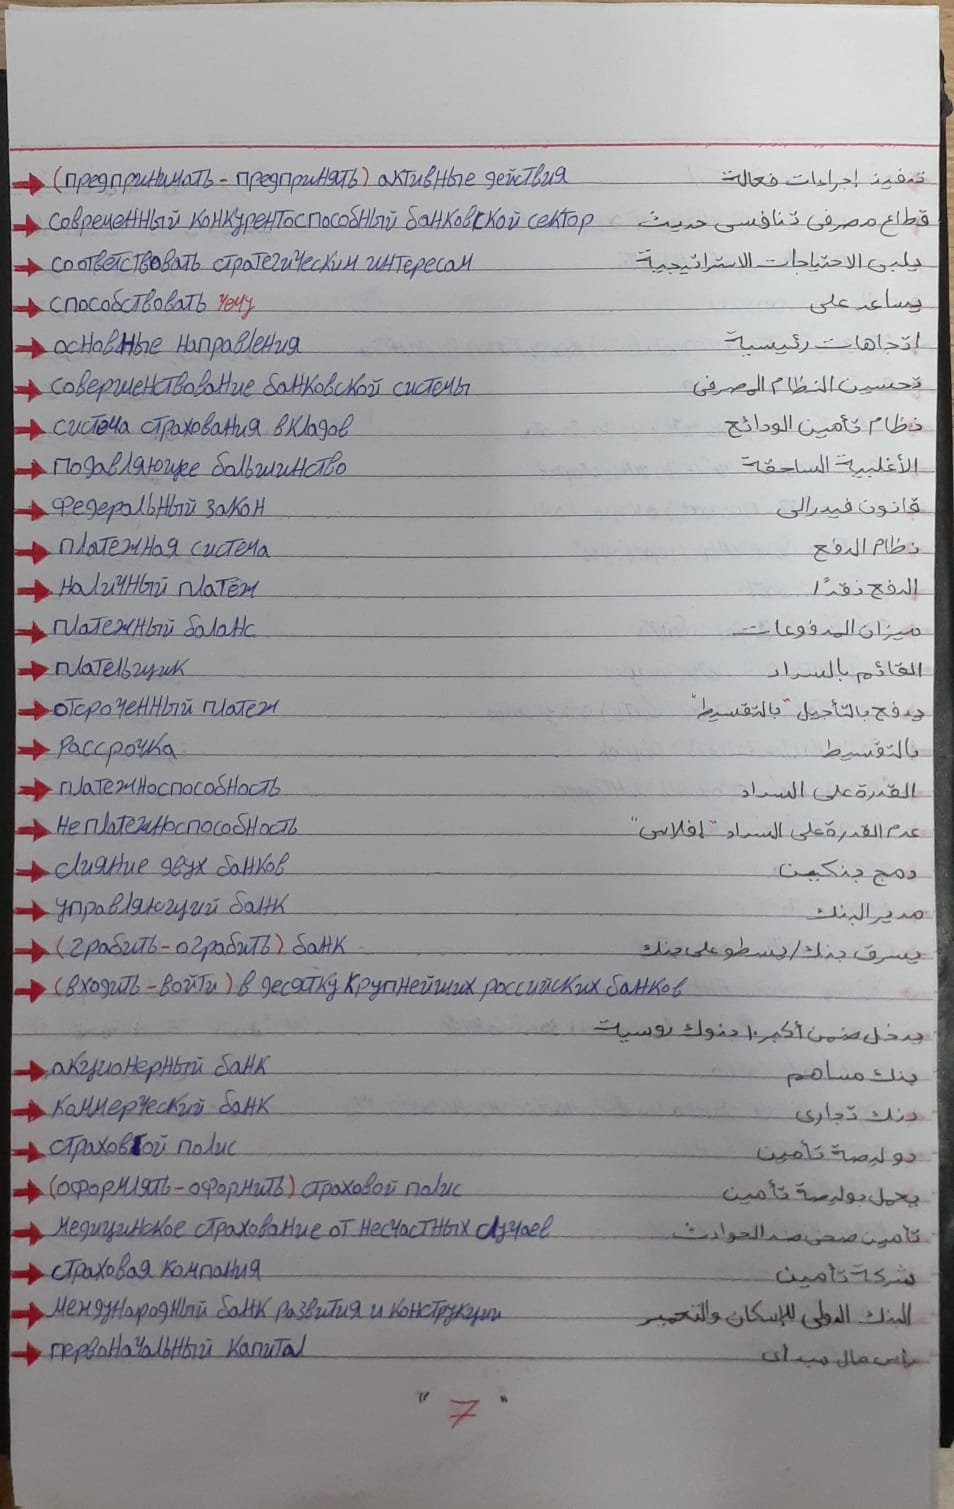 (предпринимать - предпринять) активные действия تنفيذ إجراءات فعالة
современный конкурентоспособный банковской сектор قطاع مصرفى تنافسى حديث
соответствовать стратегическим интересам يلبى الاحتياجات الاستراتيجية
способствовать чему يساعد على
основные направления اتجاهات رئيسية
совершенствование банковской системы تحسين النظام المصرفى
система страхования вкладов نظام تأمين الودائع
подавляющее большинство الأغلبية الساحقة
Федеральный закон قانون فيدرالى
платежная система نظام الدفع
наличный платёж الدفع نقدًا
платежный баланс ميزان المدفوعات
плательщик القائم بالسداد
отсроченный платеж يدفع بالتأجيل "بالتقسيط"
Рассрочка بالتقسيط
платежноспособность القدرة على السداد
неплатежноспособность عدم القدرة على السداد "إفلاس"
слияние двух банков دمج بنكين
управляющий банк مدير البنك
(грабить - ограбить) банк يسرق بنك / يسطو على بنك
(входить - войти) в десятку крупнейших российских банков
يدخل ضمن أكبر ١٠ بنوك روسية
акционерный банк بنك مساهم
Коммерческий банк بنك تجارى
страховой полис بوليصة تأمين
(оформлять - оформить) страховой полис يعمل بوليصة تأمين
медицинское страхование от несчастных случаев تأمين صحى ضد الحوادث
страховая компания شركة تأمين
международный банк развития и конструкции البنك الدولى للإسكان والتعمير
первоначальный капитал راس مال مبدأى
" 7 "